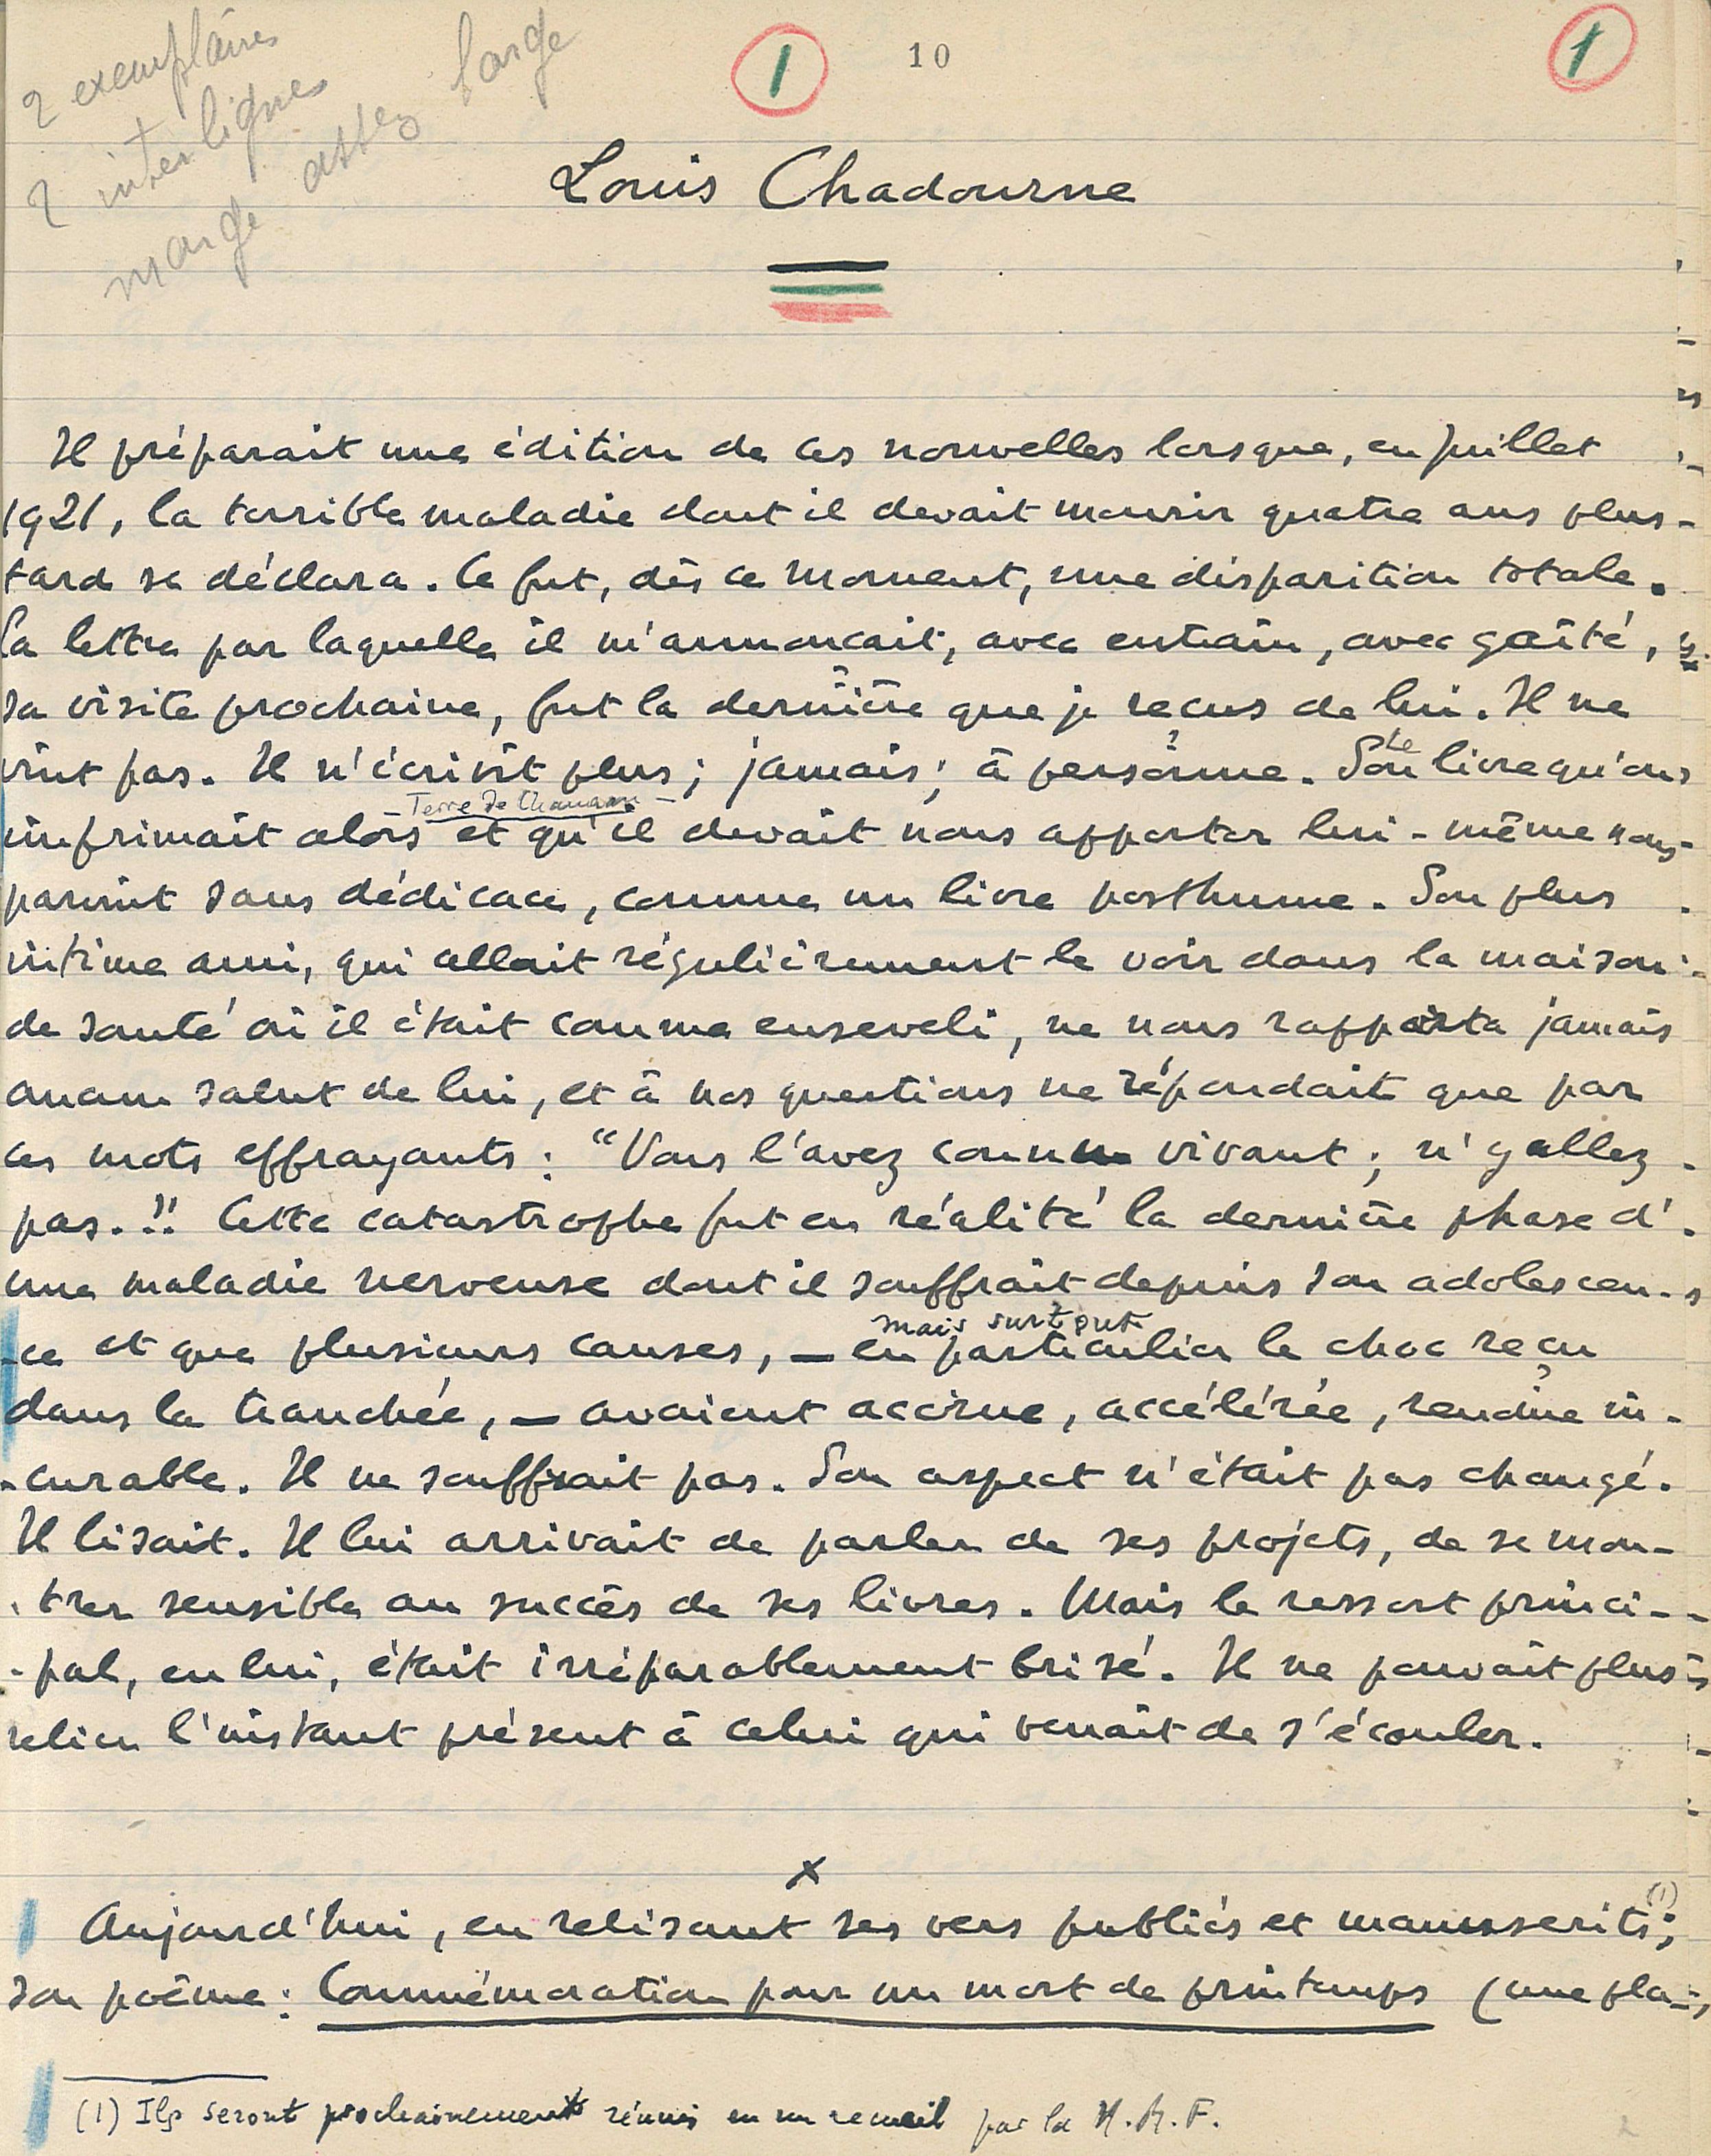 2 exemplaires
2 interlignes
marge assez large
1
10
1
Louis Chadourne
Il préparait une édition de ces nouvelles lorsque, en juillet
1921, la terrible maladie dont il devait mourir quatre ans plus-
tard se déclara. Ce fut, dès ce moment, une disparition totale.
La lettre par laquelle il m'annonçait, avec entrain, avec gaîté,
sa visite prochaine, fut la dernière que je reçus de lui. Il ne
vint pas. Il n'écrivit plus; jamais; à personne. Son Le livre qu'on
Terre de Chanaan
imprimait alors et qu'il devait nous apporter lui-même nous
parvint sans dédicace, comme un livre posthume. Son plus
intime ami, qui allait régulièrement le voir dans la maison
de santé où il était comme enseveli, ne nous rapporta jamais
aucun salut de lui, et à nos questions ne répondait que par
ces mots effrayants: "Vous l'avez connu vivant; n'y allez
pas.!" Cette catastrophe fut en réalité la dernière phase d'
une maladie nerveuse dont il souffrait depuis son adolescen-
mais surtout
-ce et que plusieurs causes, — en particulier le choc reçu
dans la tranchée, — avaient accrue, accélérée, rendue in-
-curable. Il ne souffrait pas. Son aspect n'était pas changé.
Il lisait. Il lui arrivait de parler de ses projets, de se mon-
-trer sensible au succès de ses livres. Mais le ressort princi-
-pal, en lui, était irréparablement brisé. Il ne pouvait plus
relier l'instant présent à celui qui venait de s'écouler.
x
Aujourd'hui, en relisant ses vers publiés et manuscrits (1);
son poème: Commémoration pour un mort de printemps (une pla-
(1) Ils seront prochainement réunis en un recueil par la N.R.F.
2